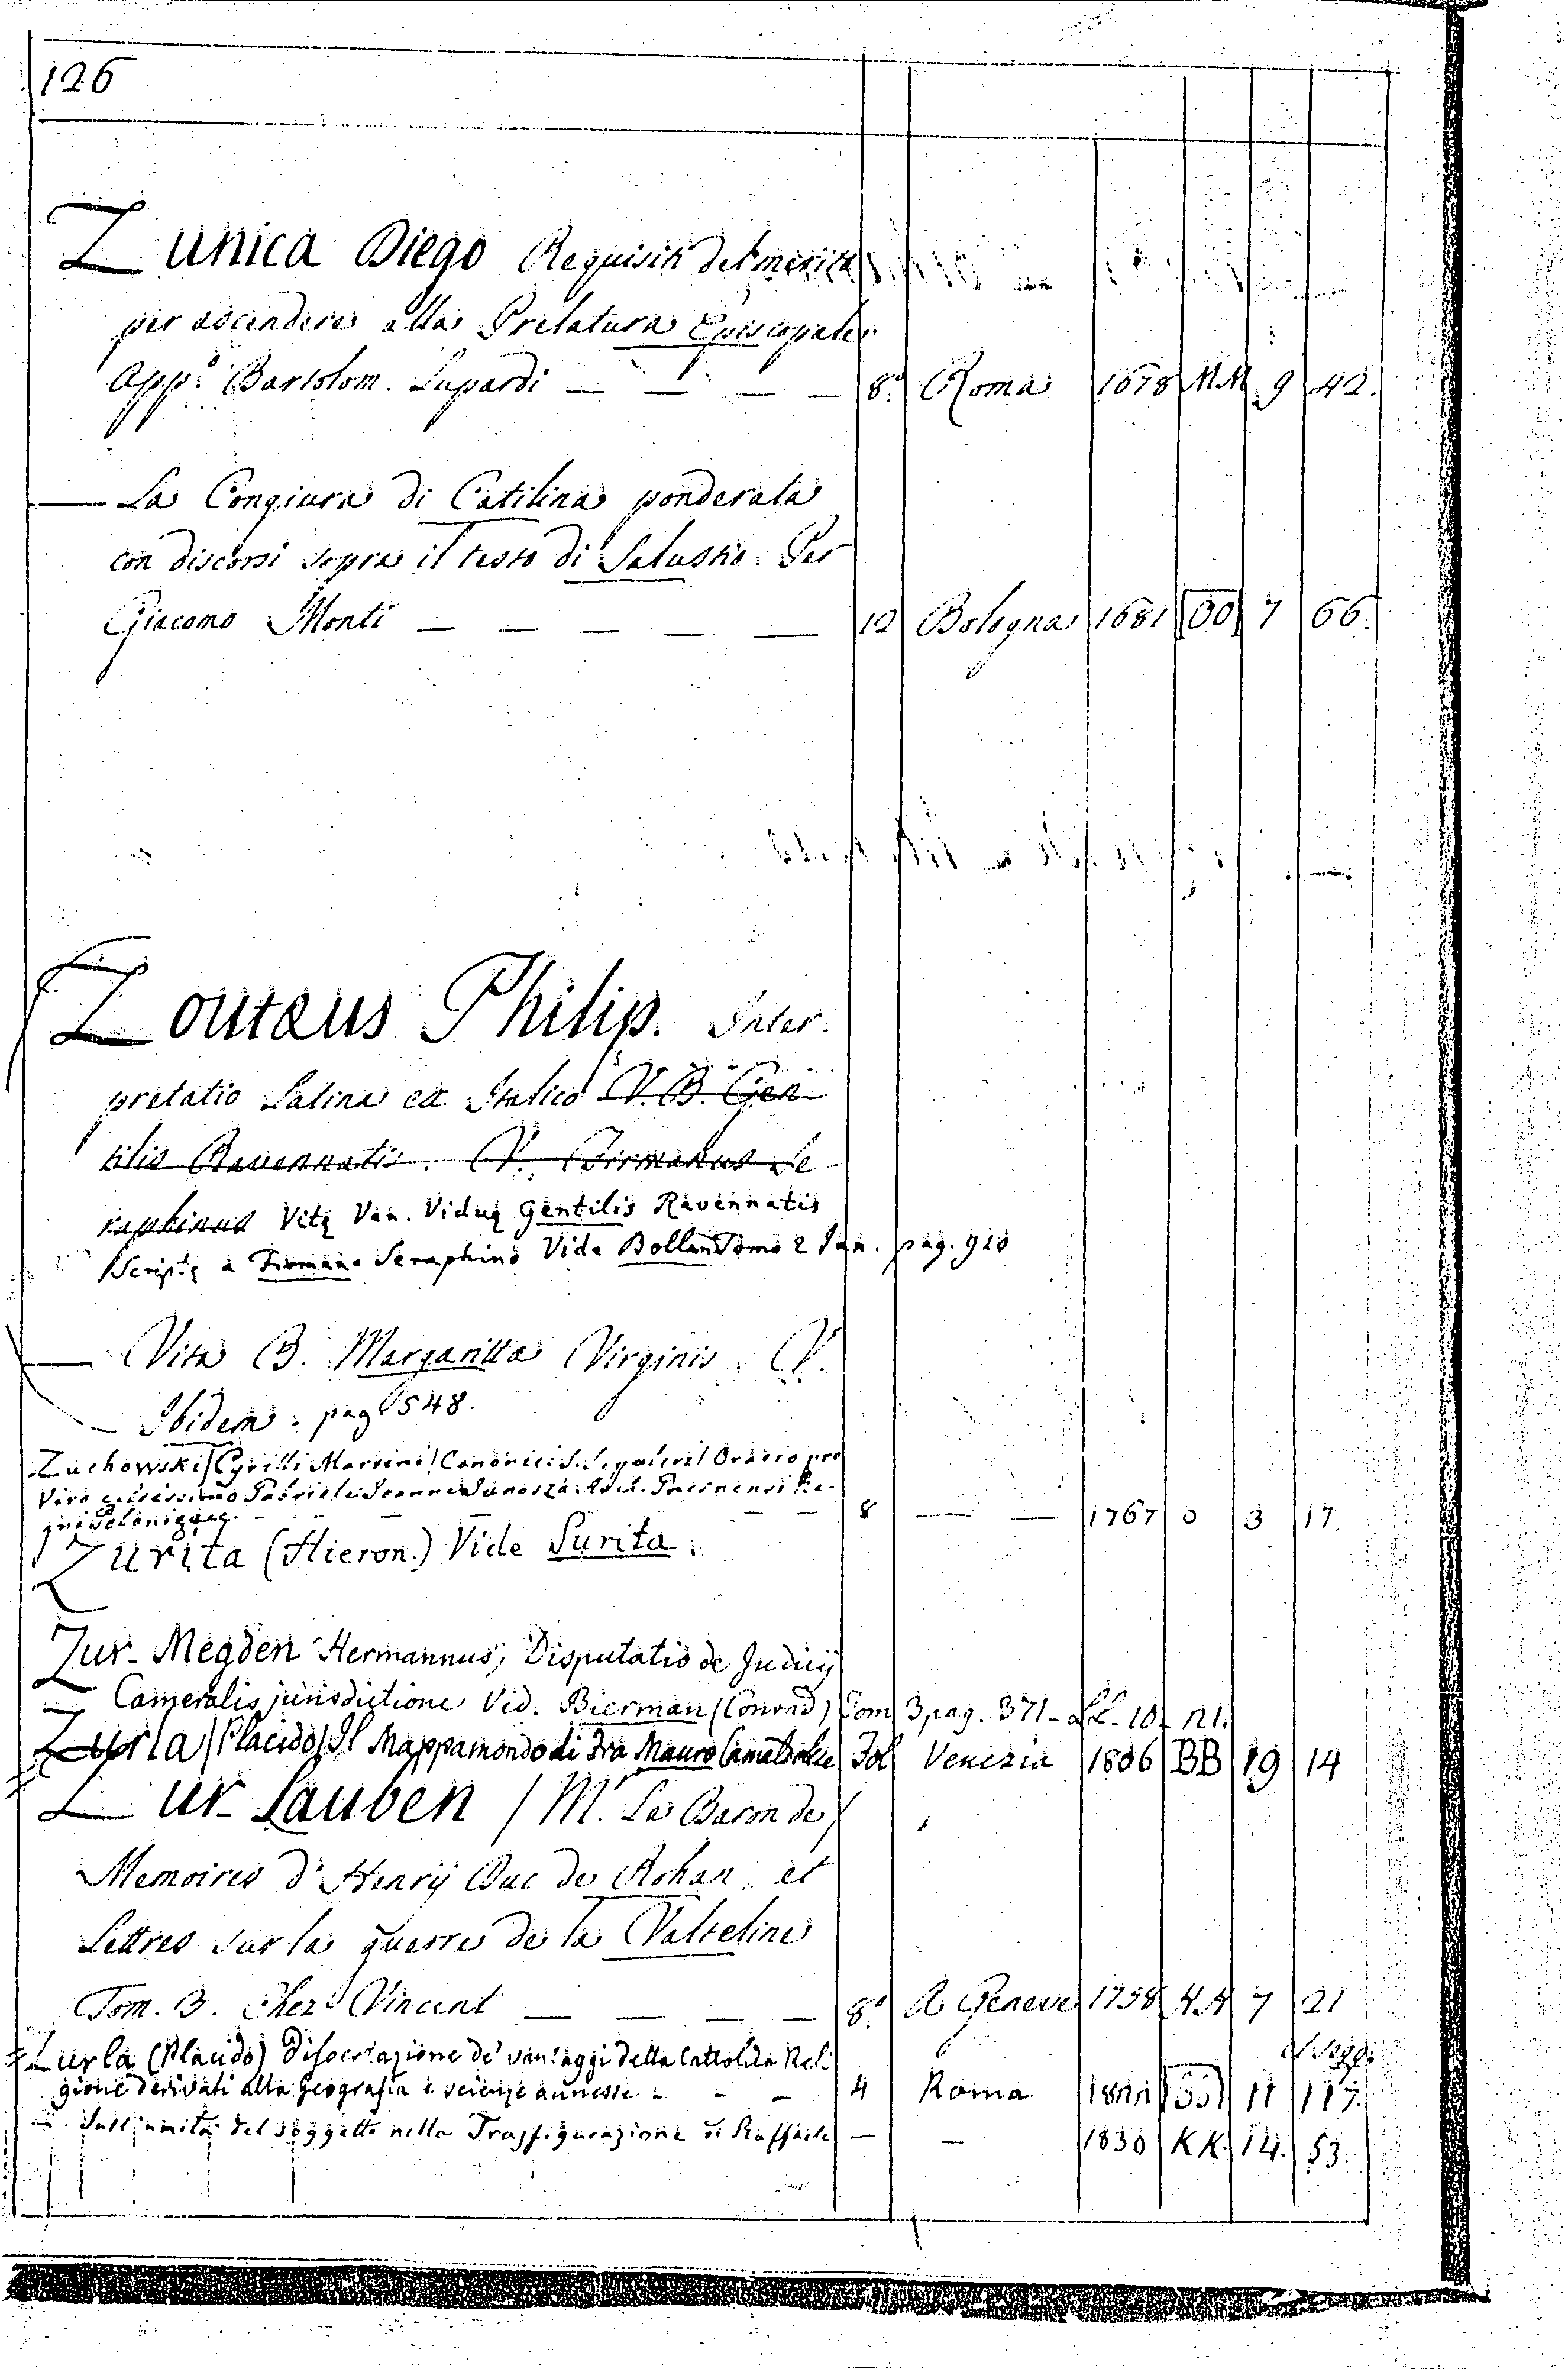 126
Zunica Diego Requisiti del merito
per ascendere alla Prelatura Episcopale
App.o Bartolom. Lupardi — — — — 8.o Roma 1678 MM 9 42.
— La Congiura di Catilina ponderata
con discorsi sopra il testo di Salustio. Per
Giacomo Monti — — — — — 12 Bologna 1681 OO 7 66.
Zoutæus Philip. Inter-
pretatio Latina ex Italico V. B. Gen
tilis Ravennatis. V. Firmanus Se
raphinus Vitę Ven. Viduę Gentilis Ravennatis
Script.ę a Firmano Seraphino Vide Bolland Tomo 2 Jan. pag. 910
— Vita B. Margaritta Virginis. V.
— Ibidem: pag 548.
Zuchowski / Cyrilli Martini / Canonici S. Sepulcri / Oratio pro
Viro
8 — — 1767 O 3 17
Zurita (Hieron.) Vide Surita.
Zur-Megden Hermannus, Disputatio de Judicij
Cameralis jurisdictione Vid. Bierman (Conrad) Tom 3 pag. 371 - LL. 10. n1.
Zurla / Placido / Il Mappamondo di Fra Mauro Camaldolese Fol Venezia 1806 BB 19 14
Zur-Lauben / M.r Le Baron de /
Memoires d'Henrÿ Duc de Rohan et
Lettres sur la guerre de la Valteline
Tom. 3. Chez Vincent — — — — 8.o A Geneve 1758 7 21
Zurla (Placido) Dissertazione de' vantaggi della Cattolica Reli
gione derivati alla Geografia e scienze annesse - - - 4 Roma 11 117.
— Sull'unità del soggetto nella Trasfigurazione di Raffaele — — 1830 KK. 14. 53.